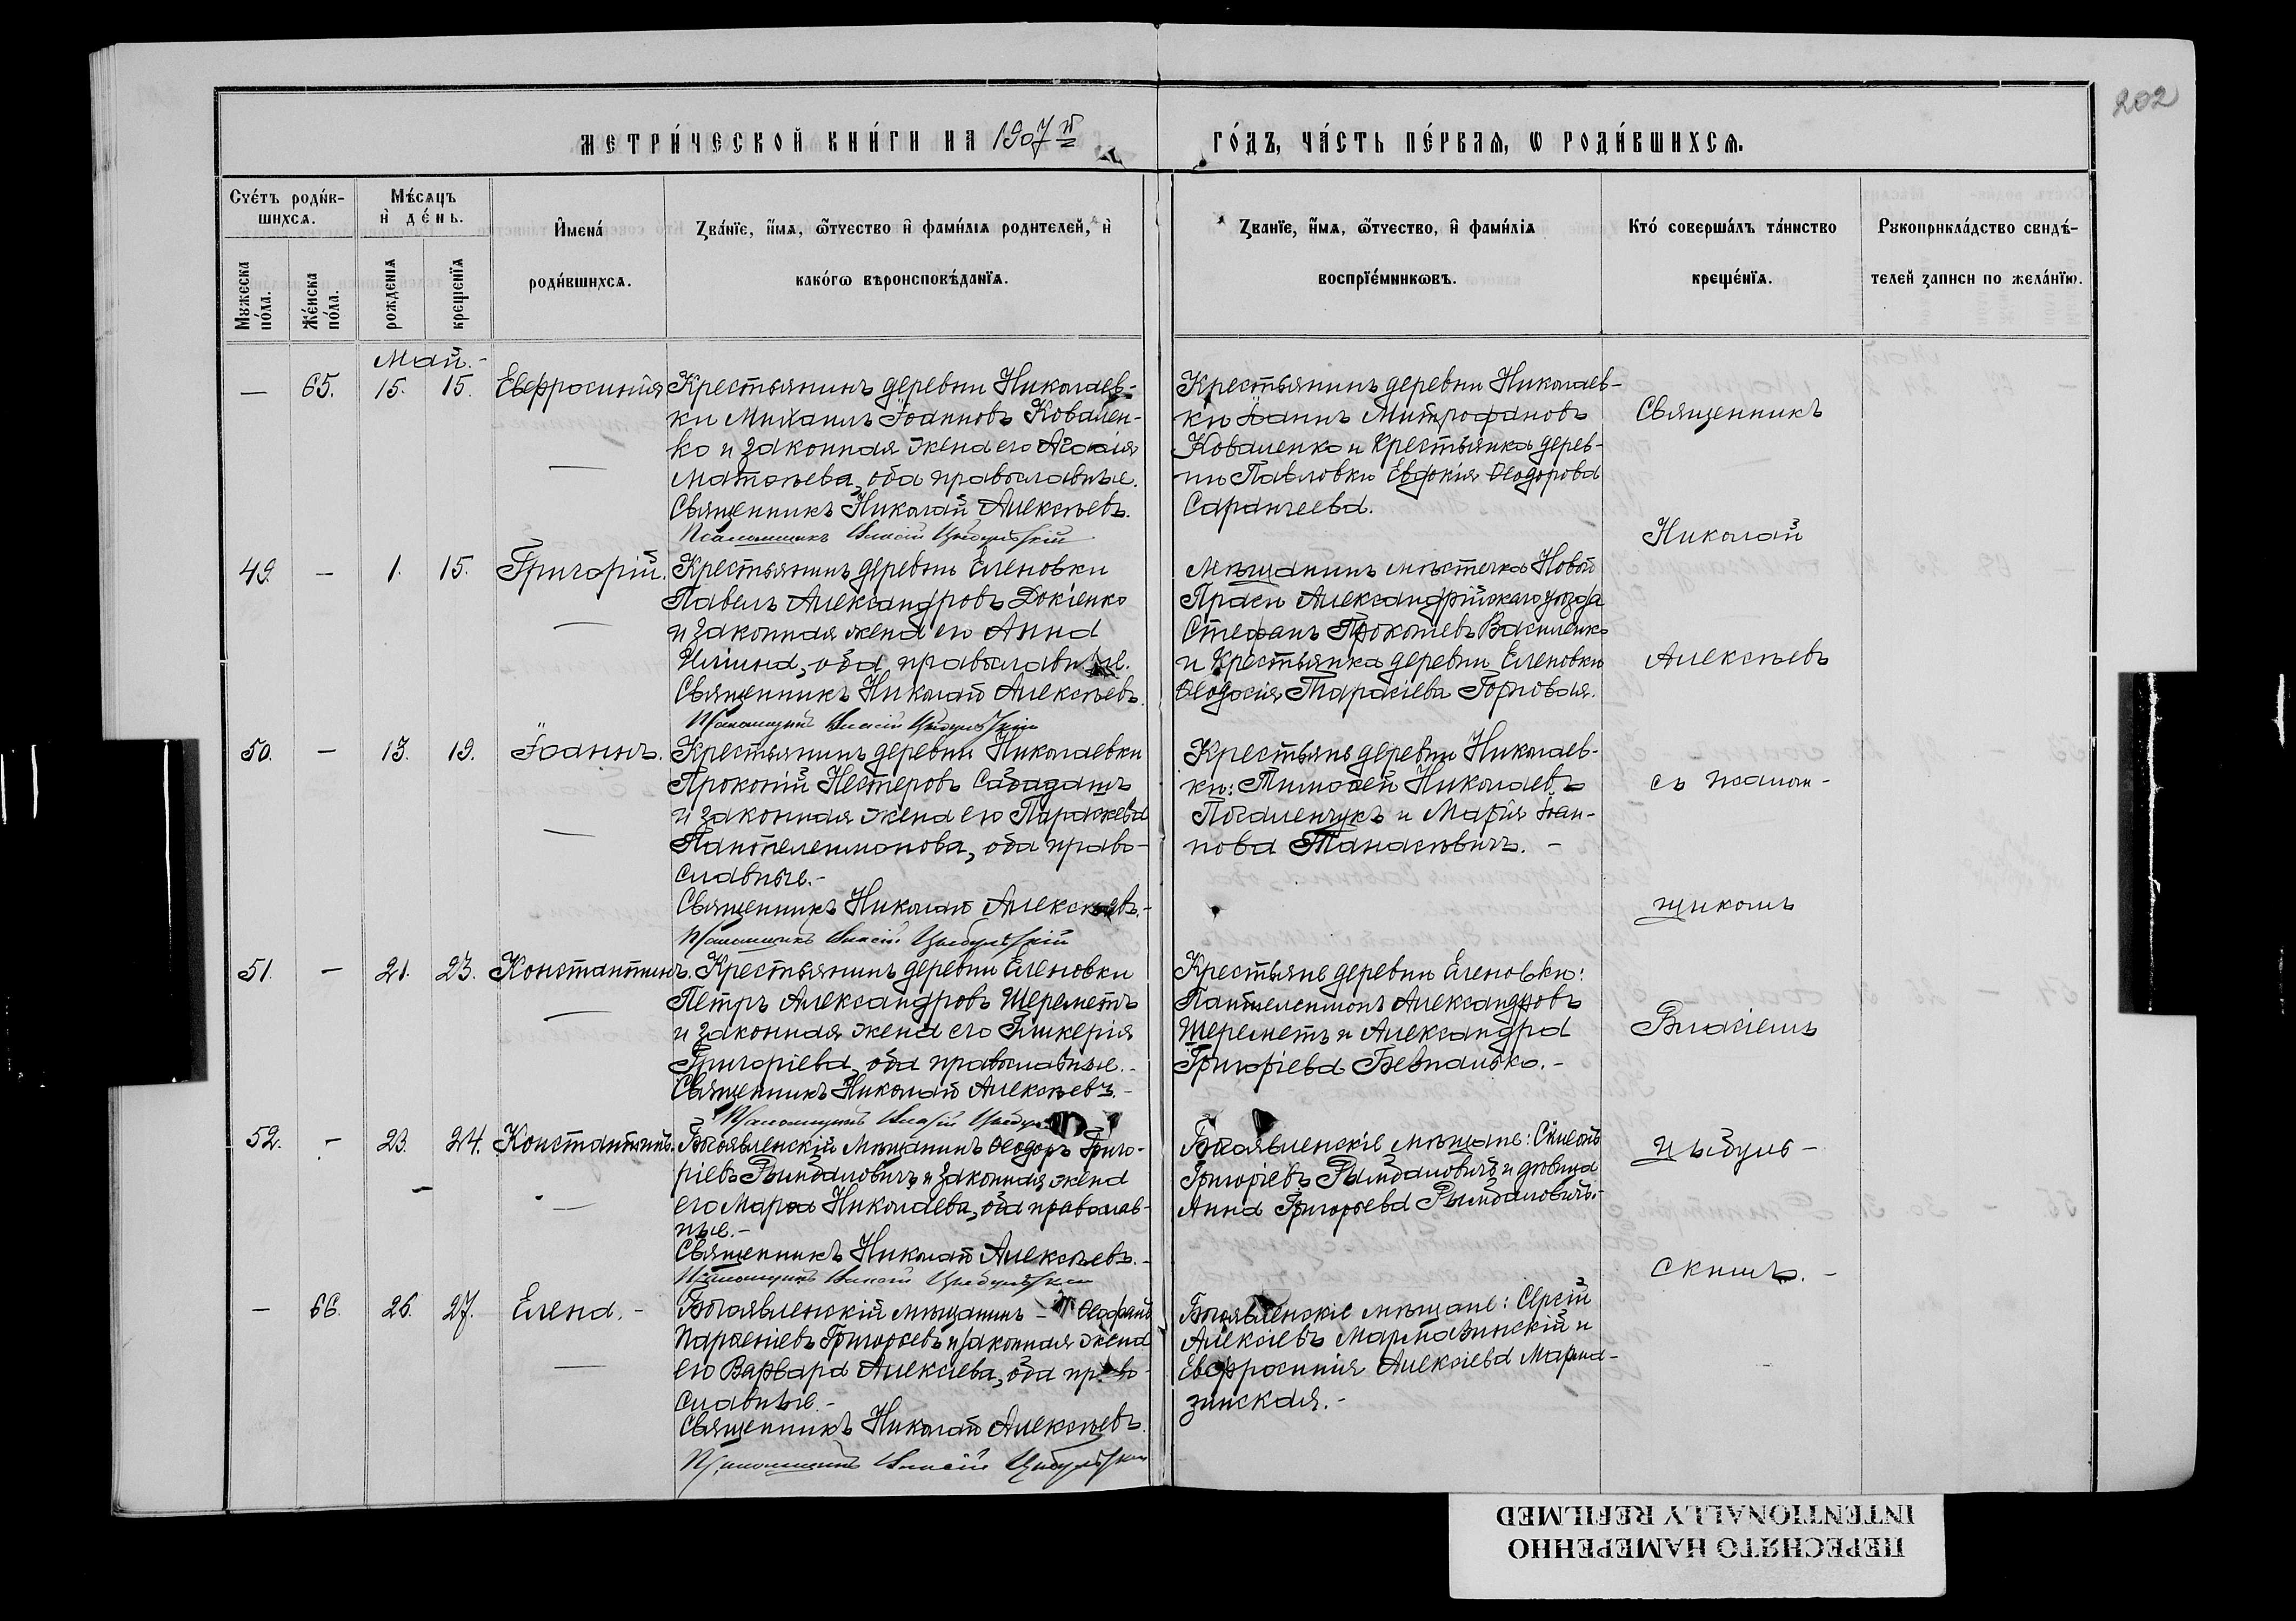 202
МЕТРИ́ЧЕСКОЙ КНИ́ГИ НА 1907й ГО́ДЪ, ЧА́СТЬ ПЕ́РВАЯ, Ѡ РОДИ́ВШИХСЯ.
Счетъ роди́вшихся.
Мужеска по́ла.
Же́нска по́ла.
Мѣ́сяцъ и де́нь.
рожденія
крещенїя
Имена́ роди́вшихся.
Зва́нїе, и́мя, ѻ́тчество и фами́лія родителей, и како́гѡ вѣроисповѣ́данїя.
Зва́нїе, и́мя, ѻ́тчество, и фами́лія воспрїе́мникѡвъ.
Кто́ соверша́лъ та́инство креще́нїя.
Рукоприкла́дство свидѣ́телей записи по жела́нїю.
Май.-
— 65. 15. 15. Евфросинія
Крестьянинъ деревни Николаев-
ки Михаилъ Іоанновъ Ковален-
ко и законная жена его Агаѳія
Матѳеева, оба православные.
Священникъ Николай Алексѣевъ.
Псаломщикъ Власій Цыбульскій
Крестьянинъ деревни Николаев-
ки Іоаннъ Митрофановъ
Коваленко и Крестьянка дерев-
ни Павловки Евдокія Ѳеодорова
Саранчеева.
49. — 1. 15. Григорій.
Крестьянинъ деревни Еленовки
Павелъ Александровъ Докіенко
и законная жена его Анна
Иліина, оба православные.
Священникъ Николай Алексѣевъ
Псаломщикъ Власій Цыбульскій
Мѣщанинъ мѣстечка Новой
Праги Александрійскаго уѣзда
Стефанъ Прокопіевъ Василенко
и Крестьянка деревни Еленовки
Ѳеодосія Тарасіева Горловая.
50. — 13. 19. Іоаннъ.
Крестьянинъ деревни Николаевки
Прокопій Нестеровъ Сабадашъ
и законная жена его Параскева
Пантелеимонова, оба право-
славные.-
Священникъ Николай Алексѣевъ.-
Псаломщикъ Власій Цыбульскій
Крестьяне деревни Николаев-
ки: Тимоѳей Николаевъ
Погаленчукъ и Марія Іоан-
нова Танасевичъ. -
51. — 21. 23. Константинъ.
Крестьянинъ деревни Еленовки
Петръ Александровъ Шереметъ
и законная жена его Гликерія
Григоріева, оба православные.-
Священникъ Николай Алексѣевъ.-
Псаломщикъ Власій
Крестьяне деревни Еленовки:
Пантелеимонъ Александровъ
Шереметъ и Александра
Григоріева Безпалько.-
52. — 23. 24. Константинъ.
Богоявленскій мѣщанинъ Ѳеодоръ Григо-
ріевъ Рымбаловичъ и законная жена
его Марѳа Николаева, оба православ-
ные.-
Священникъ Николай Алексѣевъ.-
Псаломщикъ Власій Цыбульскій
Богоявленскіе мѣщане: Симеонъ
Григоріевъ Рымбаловичъ и дѣвица
Анна Григорьева Рымбаловичъ.-
— 66. 26. 27. Елена.-
Богоявленскій мѣщанинъ - Ѳеофанъ
Парѳеніевъ Григорьевъ и законная жена
его Варвара Алексіева, оба право-
славные.-
Священникъ Николай Алексѣевъ
Псаломщикъ Власій Цыбульскій
Богоявленскіе мѣщане: Сергій
Алексіевъ Мармазинскій и
Евфросинія Алексіева Марма-
зинская.-
Священникъ
Николай
Алексѣевъ
съ псалом-
щикомъ
Власіемъ
Цыбуль-
скимъ.-
ПЕРЕСНЯТО НАМЕРЕННО
INTENTIONALLY REFILMED